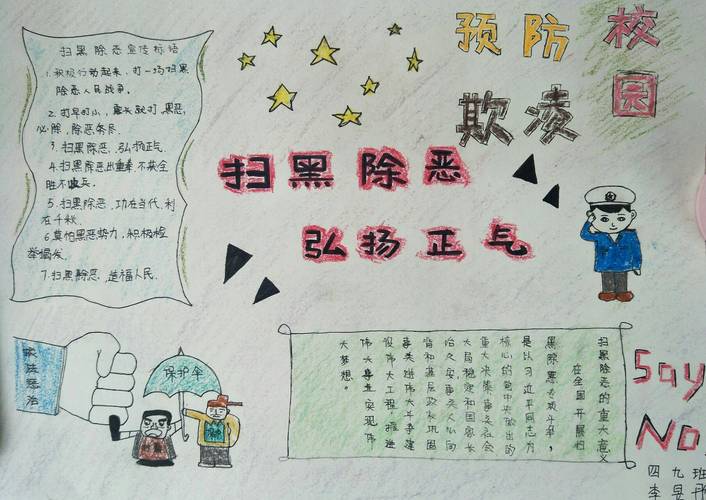 扫黑除恶宣传标语
1.积极行动起来,打一场扫黑
除恶人民战争。
2.打早打小,露头就打,黑恶
必除,除恶务尽.
3.扫黑除恶,弘扬正气
4.扫黑除恶出重拳,不获全
胜不收兵。
5.扫黑除恶,功在当代,利
在千秋.
6.莫怕黑恶势力,积极检
举揭发.
7.扫黑除恶,造福人民.
预防校园
欺凌
扫黑除恶
弘扬正气
依法惩治
保护伞
扫黑除恶的重大意义
在全国开展扫
黑除恶专项斗争,
是以习近平同志为
核心的党中央做出的
重大决策事关社会
大局稳定和国家长
治久安事关人心向
背和基层政权巩固
事关进伟大斗争建
设伟大工程,推进
伟大事业实现伟
大梦想。
Say
No
四九班